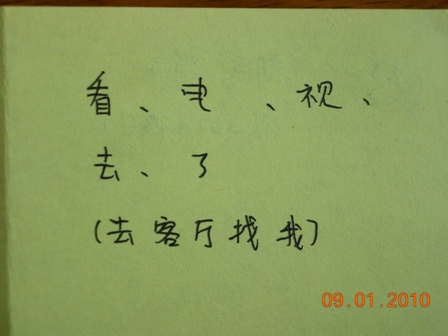 看、电、视、
去、了
(去客厅找我)
09.01.2010